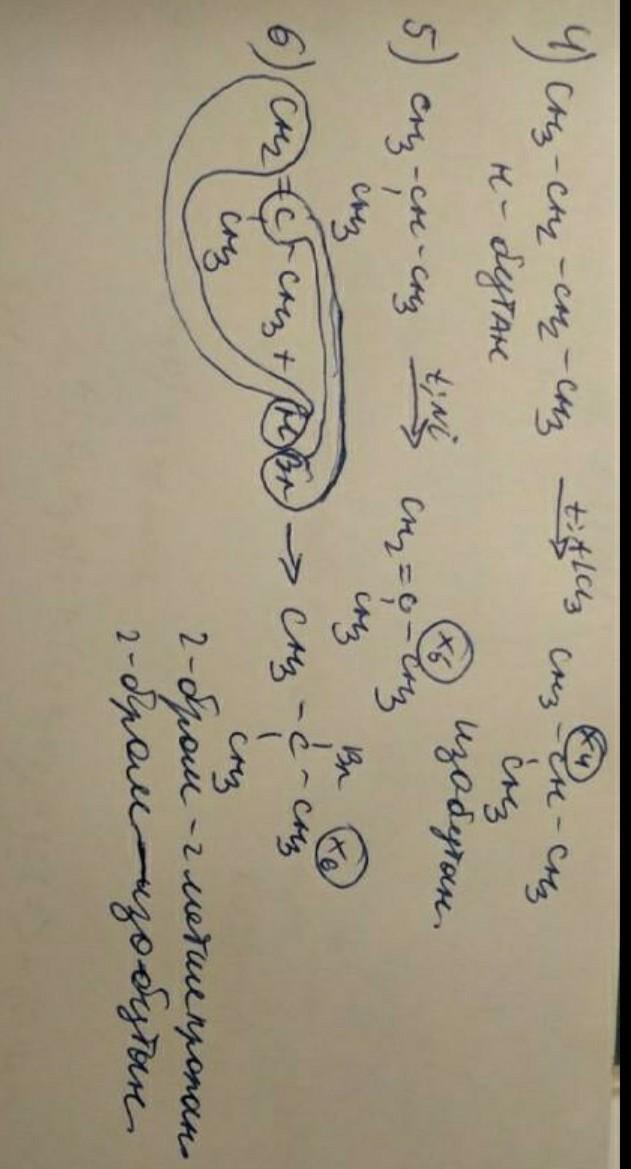 4) CH3-CH2-CH2-CH3 t;AlCl3 CH3-CH-CH3 X4
CH3
н-бутан
изобутан.
5) CH3-CH-CH3 t;Ni CH2=C-CH3 X5
CH3 CH3
Br X6
6) CH2=C-CH3+HBr → CH3-C-CH3
CH3 CH3
2-бром-2метилпропан
2-бром-изобутан.